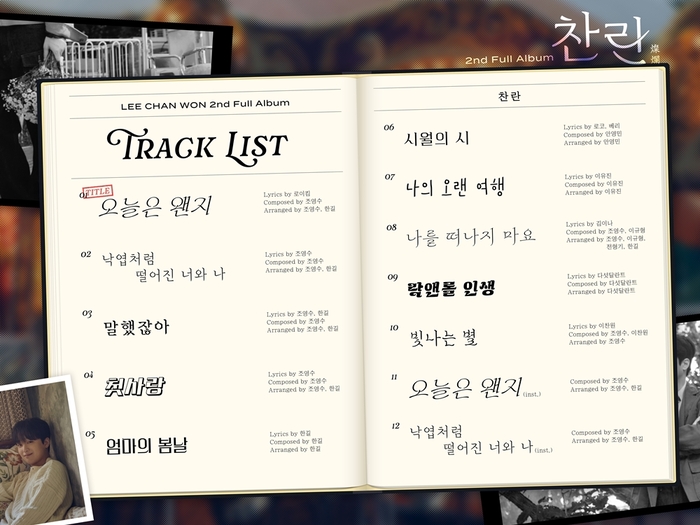 2nd Full Album
찬란
燦爛
LEE CHAN WON 2nd Full Album
TRACK LIST
TITLE
01
오늘은 왠지
Lyrics by 로이킴
Composed by 조영수
Arranged by 조영수, 한길
02
낙엽처럼
떨어진 너와 나
Lyrics by 조영수
Composed by 조영수
Arranged by 조영수, 한길
03
말했잖아
Lyrics by 조영수, 한길
Composed by 조영수
Arranged by 조영수, 한길
04
첫사랑
Lyrics by 한길
Composed by 조영수
Arranged by 조영수, 한길
05
엄마의 봄날
Lyrics by 한길
Composed by 한길
Arranged by 한길
찬란
06
시월의 시
Lyrics by 로코, 베리
Composed by 안영민
Arranged by 안영민
07
나의 오랜 여행
Lyrics by 이유진
Composed by 이유진
Arranged by 이유진
08
나를 떠나지 마요
Lyrics by 김이나
Composed by 조영수, 이규형
Arranged by 조영수, 이규형,
한길
09
락앤롤 인생
Lyrics by 다섯달란트
Composed by 다섯달란트
Arranged by 다섯달란트
10
빛나는 별
Lyrics by 이찬원
Composed by 조영수, 이찬원
Arranged by 조영수
11
오늘은 왠지 (inst.)
Composed by 조영수
Arranged by 조영수, 한길
12
낙엽처럼
떨어진 너와 나 (inst.)
Composed by 조영수
Arranged by 조영수, 한길